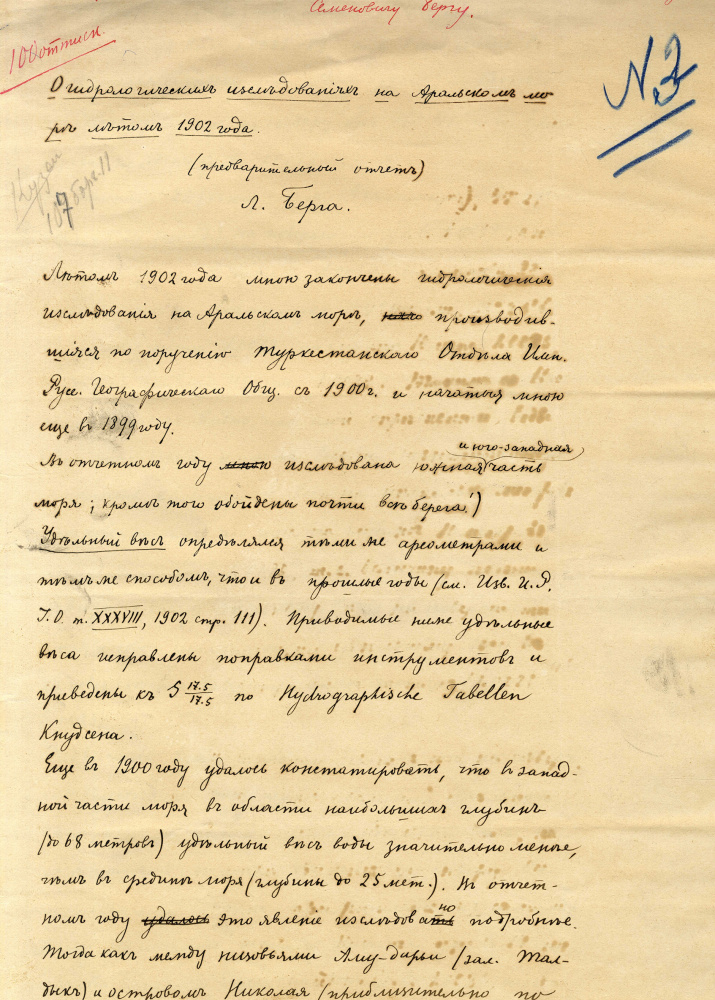 Семеновичу Бергу.
100 оттиск.
№ 2
О гидрологическихъ изслѣдованіяхъ на Аральскомъ мо-
рѣ лѣтомъ 1902 года.
(предварительный отчетъ)
Л. Берга.
Лѣтомъ 1902 года мною закончены гидрологическія
изслѣдованія на Аральскомъ морѣ, производив-
шіяся по порученію Туркестанскаго Отдѣла Имп.
Русс. Географическаго Общ. съ 1900 г. и начатыя мною
еще въ 1899 году.
и юго-западная
Въ отчетномъ году мною изслѣдована южная часть
моря; кромѣ того обойдены почти всѣ берега.¹)
Удѣльный вѣсъ опредѣлялся тѣми же ареометрами и
тѣмъ же способомъ, что и въ прошлые годы (см. Изв. И. Р.
Г. О. т. XXXVIII, 1902 стр. 111). Приводимые ниже удѣльные
вѣса исправлены поправками инструментовъ и
приведены къ S 17.5/17.5 по Hydrographische Tabellen
Кнудсена.
Еще въ 1900 году удалось констатировать, что въ запад-
ной части моря въ области наибольшихъ глубинъ
(до 68 метровъ) удѣльный вѣсъ воды значительно менѣе,
чѣмъ въ срединѣ моря (глубины до 25 мет.). Въ отчет-
номъ году удалось это явленіе изслѣдовано подробнѣе.
Тогда какъ между низовьями Аму-дарьи (зал. Тал-
дыкъ) и островомъ Николая (приблизительно по